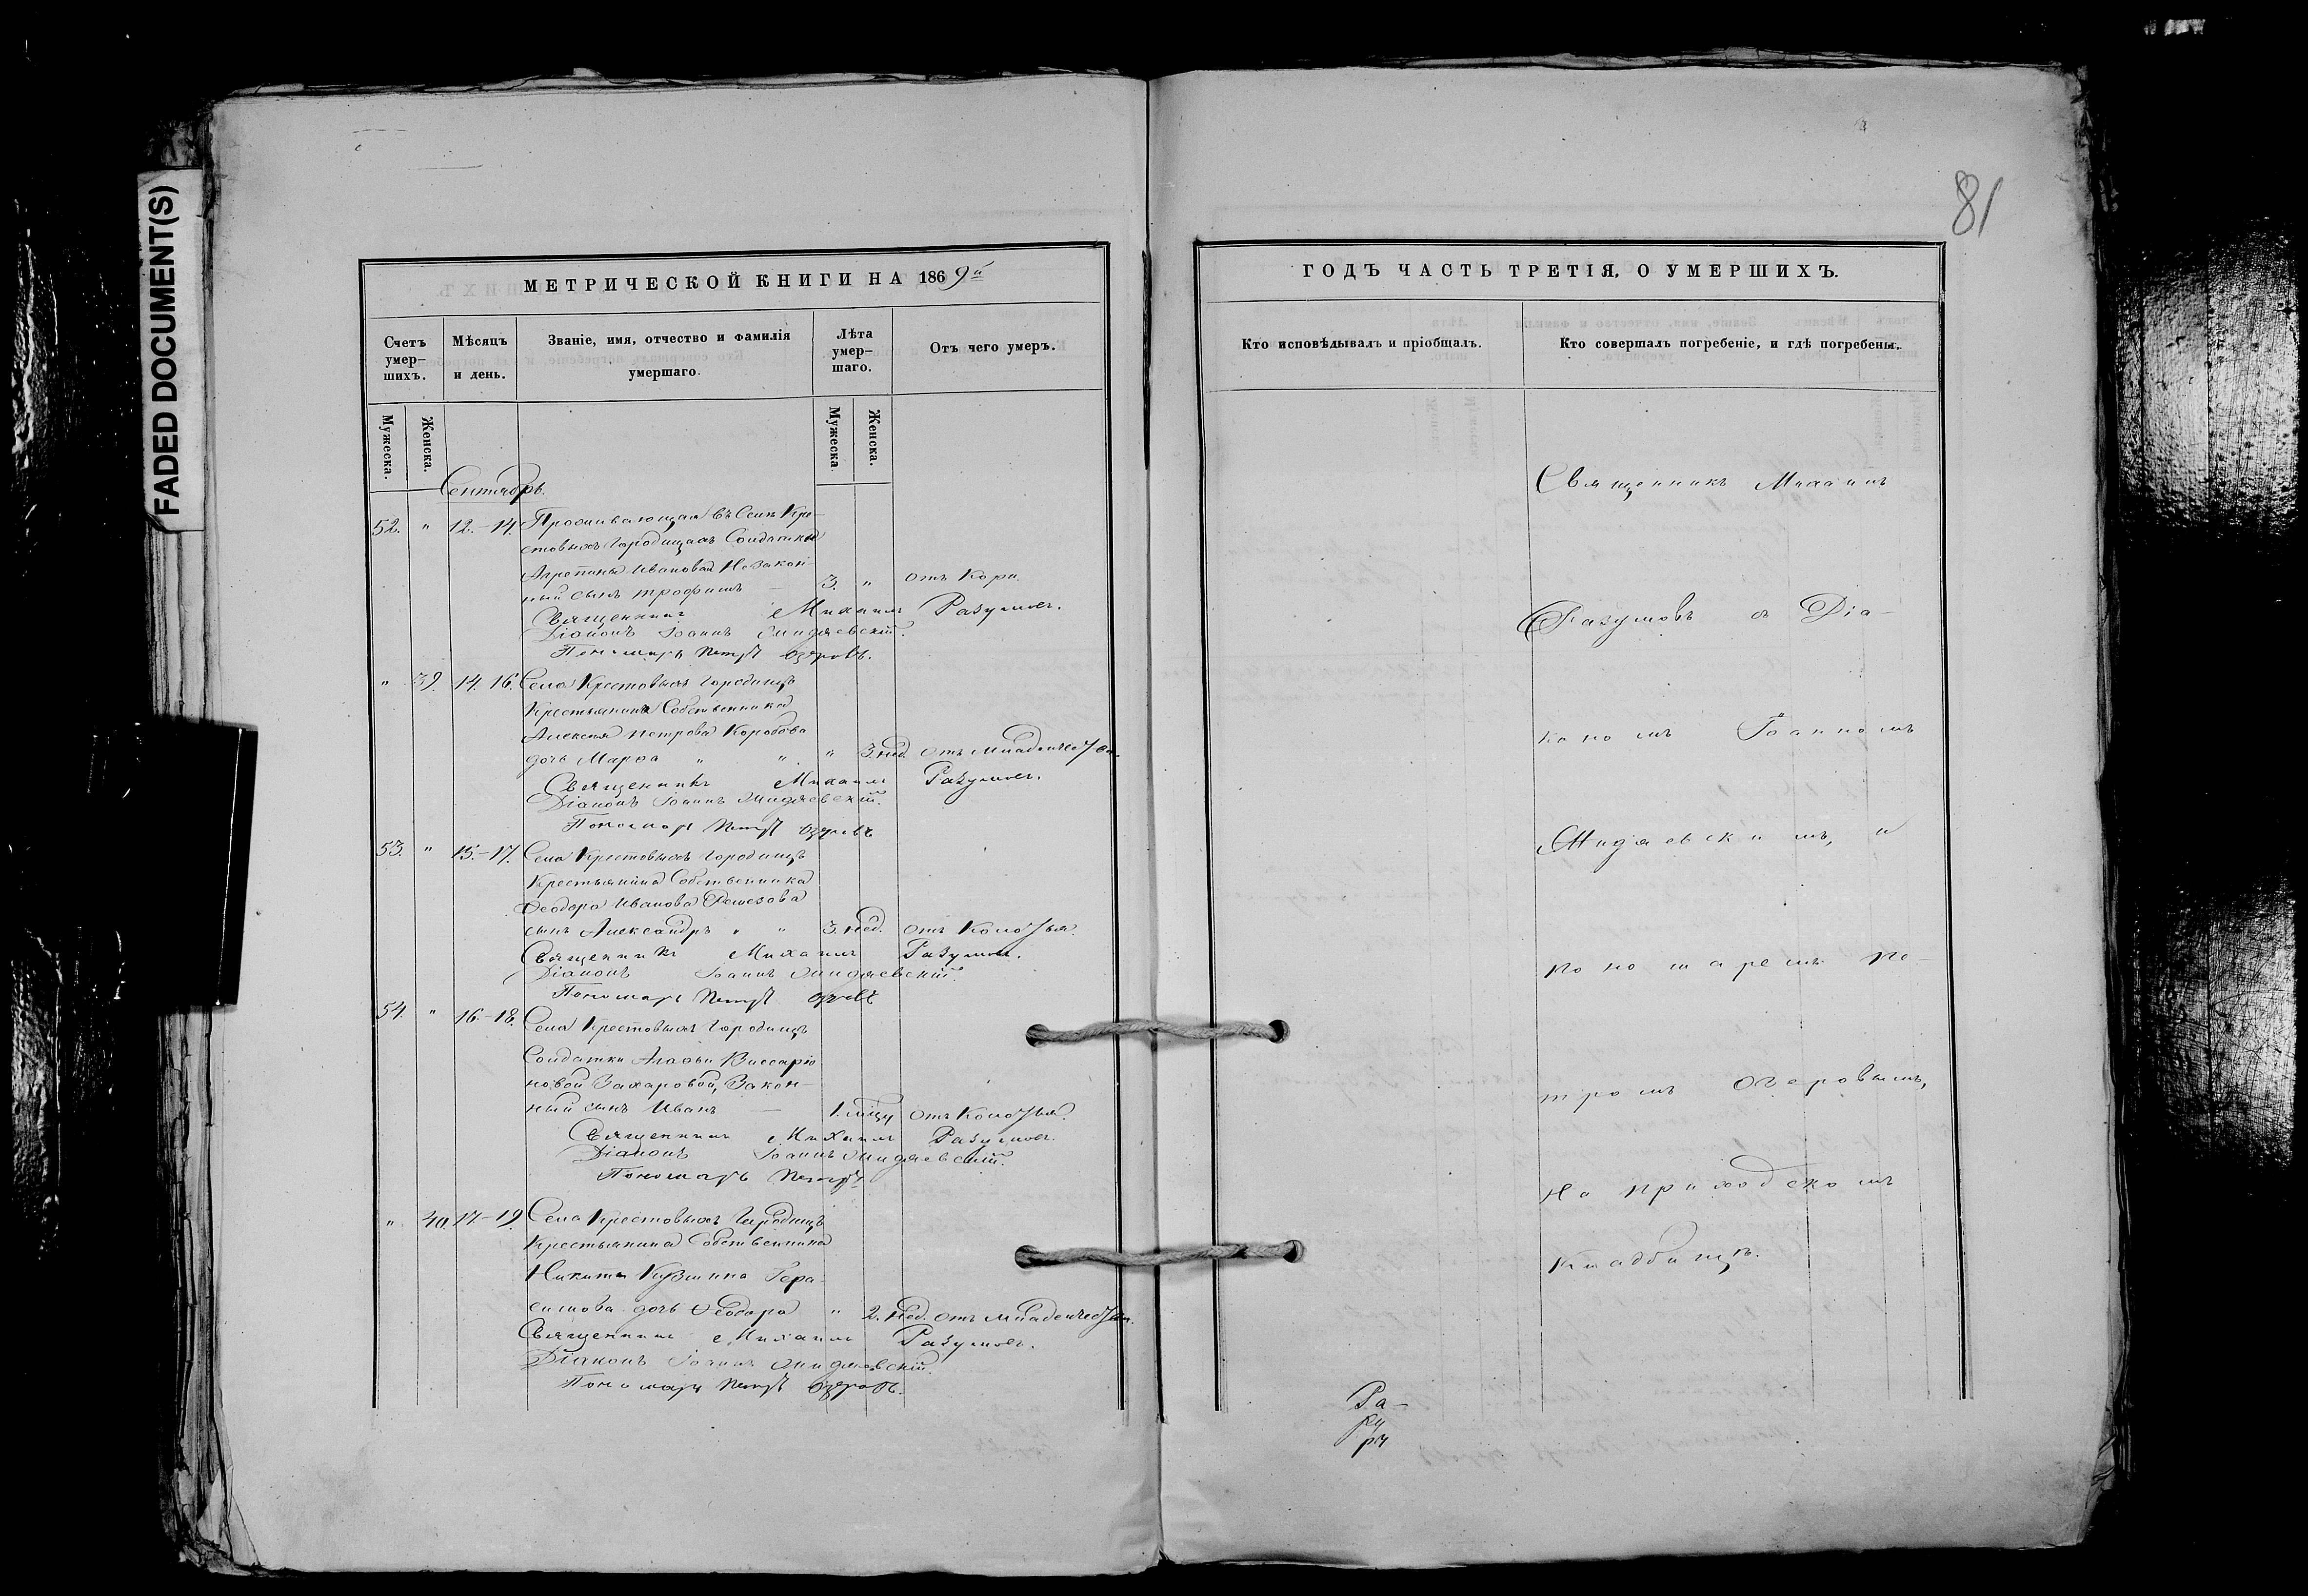 FADED DOCUMENT(S)
81
МЕТРИЧЕСКОЙ КНИГИ НА 1869й
Счетъ умер-шихъ.
Мѣсяцъ и день.
Званіе, имя, отчество и фамилія умершаго.
Лѣта умер-шаго.
Отъ чего умеръ.
Мужеска.
Женска.
Мужеска
Женска.
Сентябрь.
52. " 12.-14. Проживающая въ Селѣ Кре-
стовыхъ Городищахъ Солдатки
Агрепины Ивановой Незакон-
ный сынъ Трофимъ — 3. " отъ Кори.
Священникъ Михаилъ Разумовъ.
Діаконъ Іоаннъ
Пономарь Петръ Озеровъ.
" 39. 14. 16. Села Крестовыхъ Городищъ
Крестьянина Собственника
Алексея Петрова Коробова
дочь Марѳа " " " 3. нед. отъ младенческ.
Священникъ Михаилъ Разумовъ.
Діаконъ Іоаннъ
Пономарь Петръ Озеровъ
53. " 15.-17. Села Крестовыхъ Городищъ
Крестьянина Собственника
Ѳеодора Иванова
сынъ Александръ " " 3. нед. отъ Колотья.
Священникъ Михаилъ Разумовъ.
Діаконъ Іоаннъ
Пономарь Петръ Озеровъ
54. " 16.-18. Села Крестовыхъ Городищъ
Солдатки Агаѳьи Виссаріо-
новой Захаровой, Закон-
ный сынъ Иванъ — 1. мцу отъ Колотья.
Священникъ Михаилъ Разумовъ.
Діаконъ Іоаннъ
Пономарь Петръ
" 40. 17-19. Села Крестовыхъ Городищъ
Крестьянина Собственника
Никиты Кузмина Гера-
симова дочь Ѳеодора " 2. нед. отъ младенческ.
Священникъ Михаилъ Разумовъ.
Діаконъ Іоаннъ
Пономарь Петръ Озеровъ.
ГОДЪ ЧАСТЬ ТРЕТІЯ, О УМЕРШИХЪ.
Кто исповѣдывалъ и пріобщалъ.
Кто совершалъ погребеніе, и гдѣ погребены.
Священникъ Михаилъ
Разумовъ съ Діа-
кономъ Іоанномъ
и
пономаремъ Пе-
тромъ Озеровымъ,
на приходскомъ
кладбищѣ.
Ра-